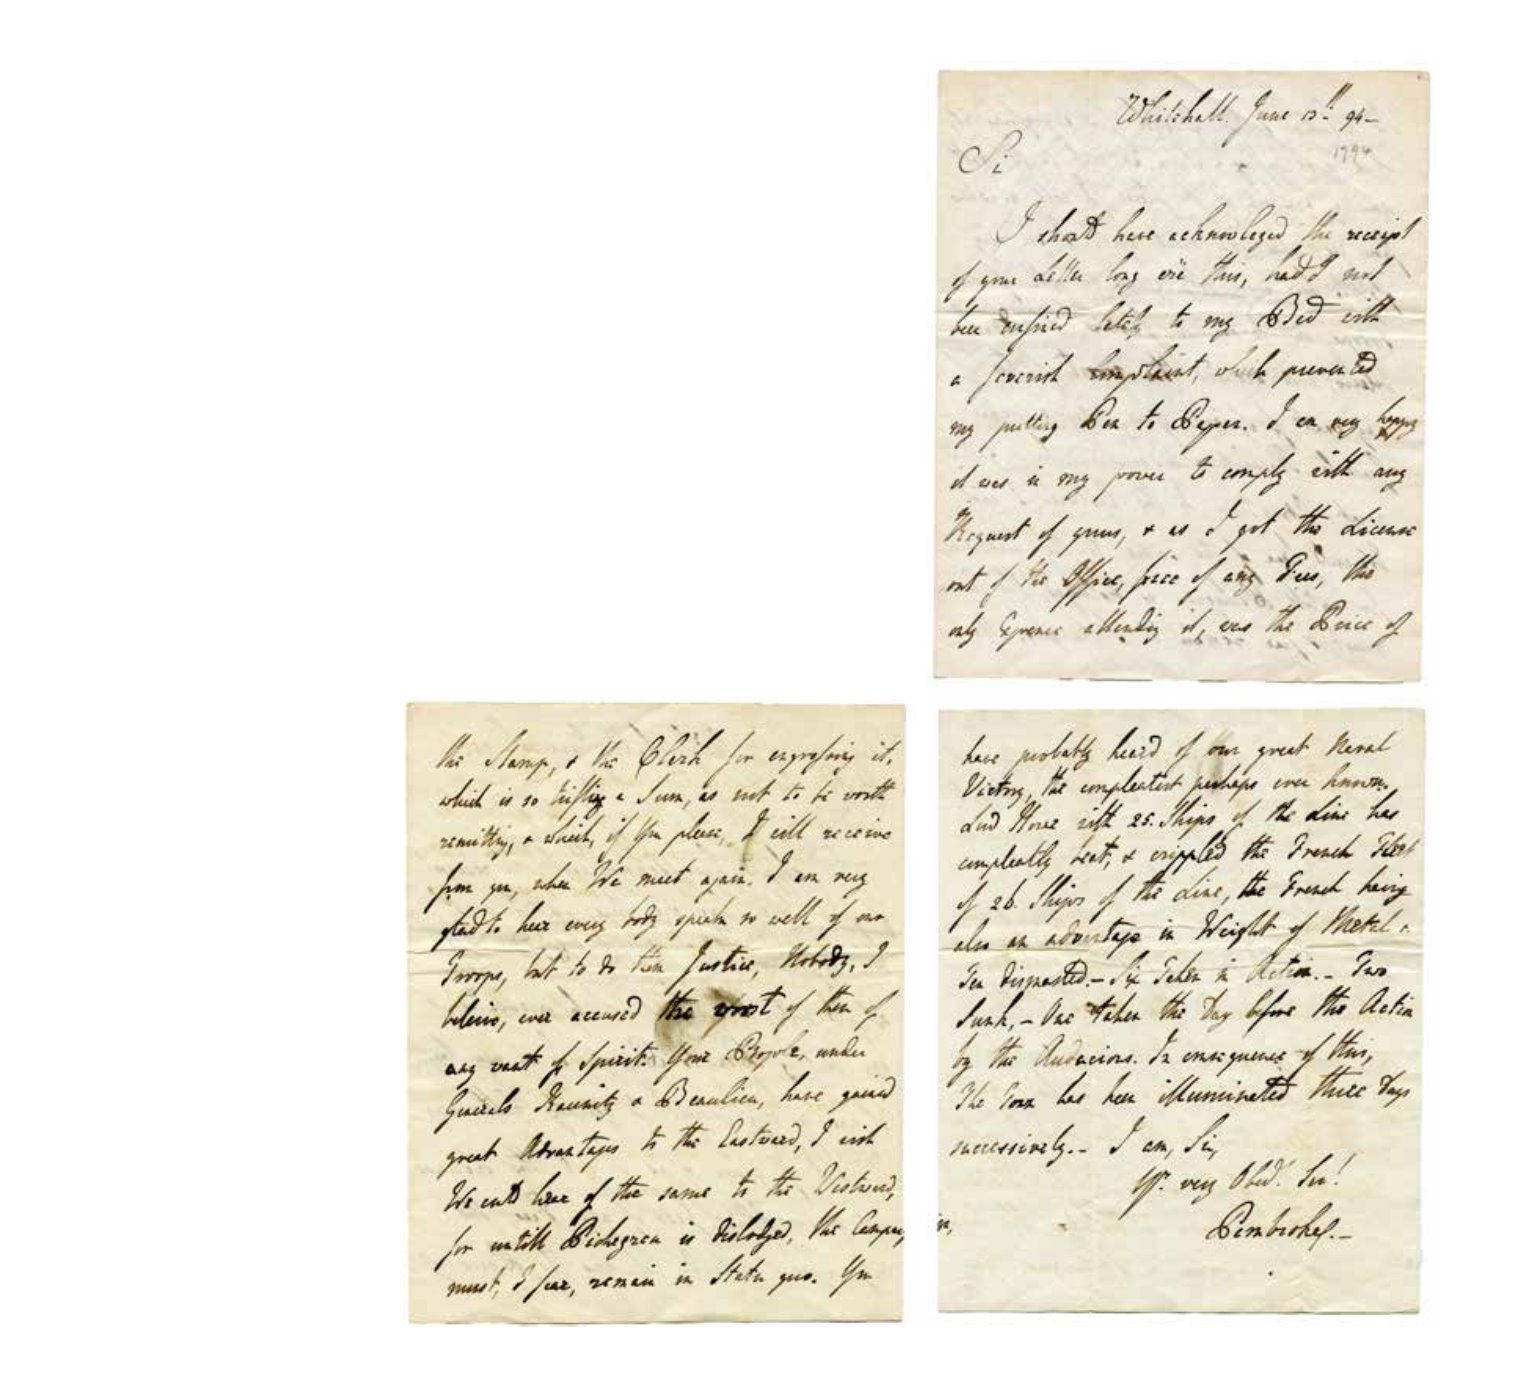 Whitehall. June 13th. 94_
1794
Sir
I shou'd have acknowleged the receipt
of your Letter long e'er this, had I not
been confined lately to my Bed with
a feverish Complaint, which prevented
my putting Pen to Paper. I am very happy
it was in my power to comply with any
Request of yours, & as I got the License
out of the Office, free of any Fees, the
only Expence attending it, was the Price of
the Stamp, & the Clerk for engrossing it,
which is so trifling a Sum, as not to be worth
remitting, & which, if You please, I will receive
from you, when We meet again. I am very
glad to hear every body speak so well of our
Troops, but to do them Justice, Nobody, I
believe, ever accused the worst of them of
any want of Spirit. Your People, under
Generals Kaunitz & Beaulieu, have gained
great Advantages to the Eastward, I wish
We cou'd hear of the same to the Westward,
for untill Pichegru is dislodged, the Campaign,
must, I fear, remain in Statu quo. You
have probably heard of our great Naval
Victory, the compleatest perhaps ever known.
Lord Howe with 25. Ships of the Line has
compleatly beat, & crippled the French Fleet
of 26. Ships of the Line, the French having
also an advantage in Weight of Metal.
Ten dismasted. _ Six Taken in Action. _ Two
Sunk, _ One taken the Day before the Action
by the Audacious. In consequence of this,
The Town has been illuminated three Days
successively. _ I am, Sir,
Yr. very Obed.t Ser.t
Pembroke. _